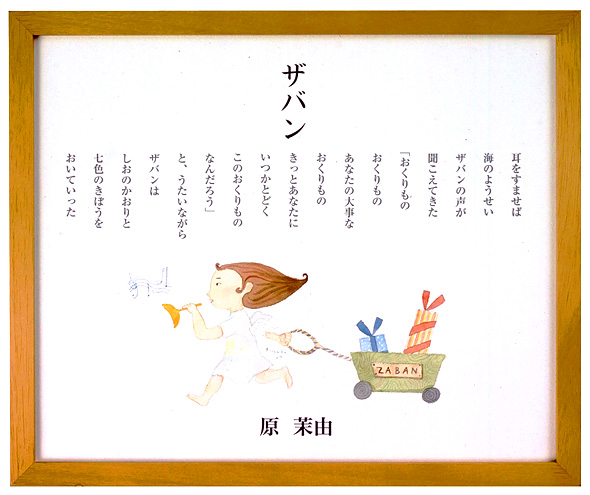 ザバン
耳をすませば
海のようせい
ザバンの声が
聞こえてきた
「おくりもの
おくりもの
あなたの大事な
おくりもの
きっとあなたに
いつかとどく
このおくりもの
なんだろう」
と、うたいながら
ザバンは
しおのかおりと
七色のきぼうを
おいていった
ZABAN
原 茉由